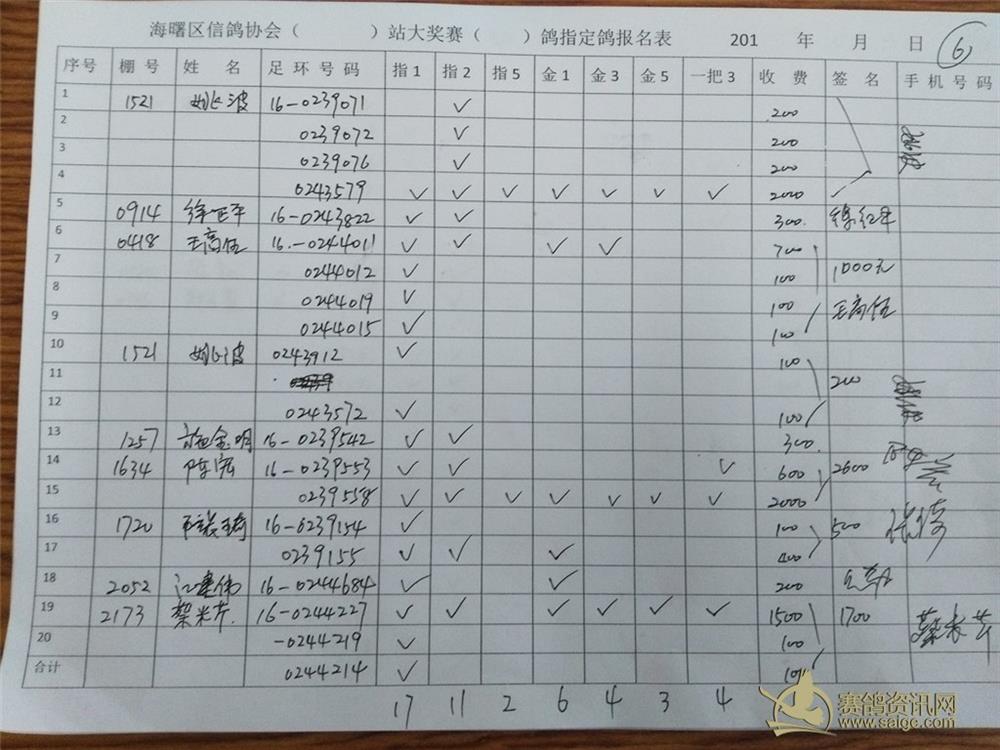 海曙区信鸽协会（ ）站大奖赛（ ）鸽指定鸽报名表 201 年 月 日 6
序号 棚号 姓名 足环号码 指1 指2 指5 金1 金3 金5 一把3 收费 签名 手机号码
1 1521 16-0239071 ✓ 200
2 0239072 ✓ 200
3 0239076 ✓ 200
4 0243579 ✓ ✓ ✓ ✓ ✓ ✓ ✓ 2000
5 0914 16-0243822 ✓ ✓ 300.
6 0418 王高伍 16.-0244011 ✓ ✓ ✓ ✓ 700
7 0244012 ✓ 100 1000元
8 0244019 ✓ 100 王高伍
9 0244015 ✓ 100
10 1521 0243912 ✓ 100
11 200
12 0243572 ✓ 100
13 1257 16-0239542 ✓ ✓ 300
14 1634 16-0239553 ✓ ✓ ✓ 600 2600
15 0239558 ✓ ✓ ✓ ✓ ✓ ✓ ✓ 2000
16 1720 16-0239154 ✓ 100 500
17 0239155 ✓ ✓ ✓ 400
18 2052 16-0244684 ✓ ✓ 200
19 2173 蔡米芹. 16-0244227 ✓ ✓ ✓ ✓ ✓ ✓ 1500 1700
20 -0244219 ✓ 100
合计 0244214 ✓ 100
17 11 2 6 4 3 4
赛鸽资讯网
www.saigc.com